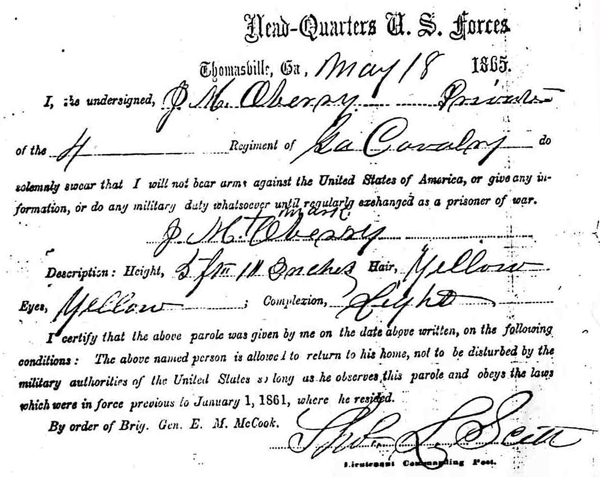 Head-Quarters U. S. Forces
Thomasville, Ga, May 18 1865.
I, the undersigned, J M. Oberry Private
of the 4 Regiment of Ga Cavalry do
solemnly swear that I will not bear arms against the United States of America, or give any in-
formation, or do any military duty whatsoever until regularly exchanged as a prisoner of war.
mark
J M. + Oberry
Description: Height, 5 ft 11 Inches Hair, Yellow
Eyes, Yellow ; Complexion, Light
I certify that the above parole was given by me on the date above written, on the following
conditions: The above named person is allowed to return to his home, not to be disturbed by the
military authorities of the United States so long as he observes this parole and obeys the laws
which were in force previous to January 1, 1861, where he resided.
By order of Brig. Gen. E. M. McCook.
L. Scott
Lieutenant Commanding Post.